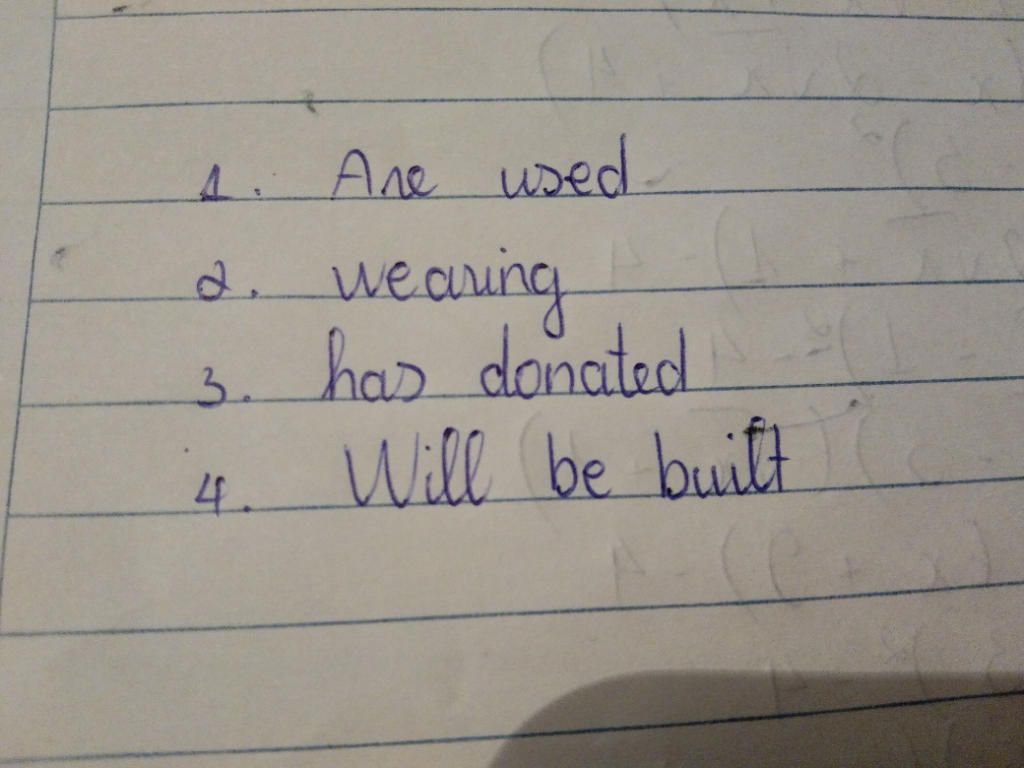 1. Are used
2. wearing
3. has donated
4. Will be built